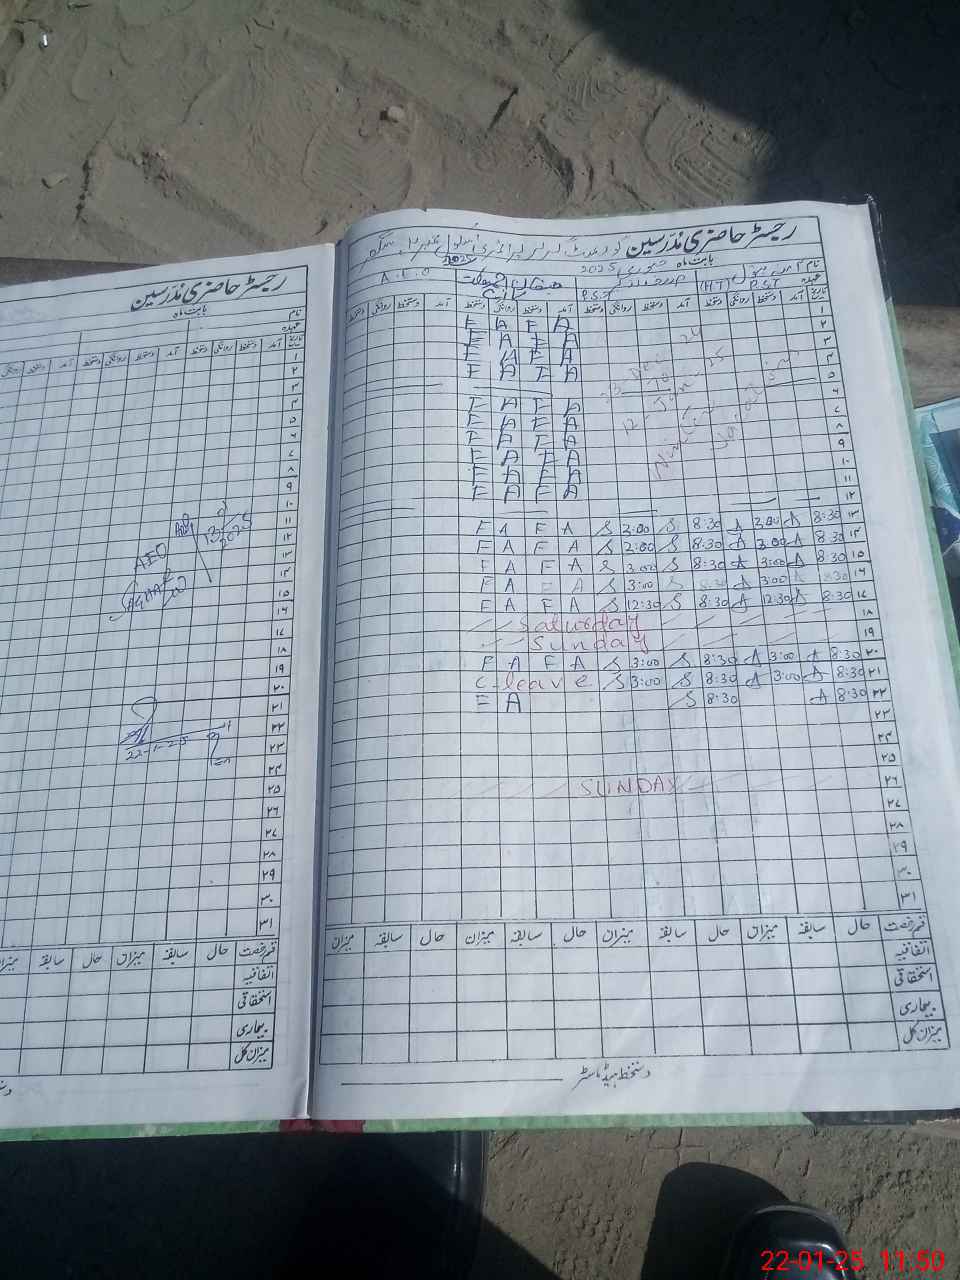 رجسٹر حاضری مدرسین
بابت ماہ
نام
عہدہ
تاریخ آمد دستخط روانگی دستخط آمد دستخط روانگی دستخط
۱
۲
۳
۴
۵
۶
۷
۸
۹
۱۰
۱۱
۱۲
۱۳
۱۴
۱۵
۱۶
۱۷
۱۸
۱۹
۲۰
۲۱
۲۲
۲۳
۲۴
۲۵
۲۶
۲۷
۲۸
۲۹
۳۰
۳۱
AEO
13
2025
22-1-25
قسم رخصت حال سابقہ میزان حال سابقہ میزان
اتفاقیہ
استحقاقی
بیماری
میزان کل
رجسٹر حاضری مدرسین گورنمنٹ
بابت ماہ جنوری 2025
نام
عہدہ P.S.T (HT) P.S.T A.E.O
تاریخ آمد دستخط روانگی دستخط آمد دستخط روانگی دستخط آمد دستخط روانگی دستخط آمد دستخط روانگی دستخط
۱ E A F A
۲ E A E A
۳ E A F A
۴ F A F A
۵
۶ F A F A
۷ F A F A
۸ F A F A
۹ F A F A
۱۰ F A F A
۱۱ F A F A
۱۲
23 Dec 24
To
12-Jan-25
Winter
Vacation
۱۳ 8:30 3:00 8:30 3:00 A F A F
۱۴ 8:30 3:00 8:30 2:00 A F A F
۱۵ 8:30 3:00 8:30 3:00 A F A F
۱۶ 8:30 3:00 8:30 3:00 A E A E
۱۷ 8:30 12:30 8:30 12:30 A F A F
۱۸ Saturday
۱۹ Sunday
۲۰ 8:30 3:00 8:30 3:00 A F A F
۲۱ 8:30 3:00 8:30 3:00 C-leave
۲۲ 8:30 8:30 A F
۲۳
۲۴
۲۵
۲۶ SUNDAY
۲۷
۲۸
۲۹
۳۰
۳۱
قسم رخصت حال سابقہ میزان حال سابقہ میزان حال سابقہ میزان حال سابقہ میزان
اتفاقیہ
استحقاقی
بیماری
میزان کل
دستخط ہیڈ ماسٹر
22-01-25 11:50